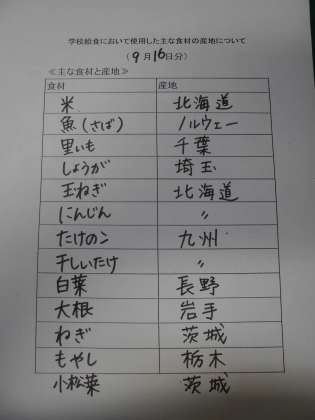 学校給食において使用した主な食材の産地について
（9月16日分）
≪主な食材と産地≫
食材 産地
米 北海道
魚(さば) ノルウェー
里いも 千葉
しょうが 埼玉
玉ねぎ 北海道
にんじん 〃
たけのこ 九州
干ししいたけ 〃
白菜 長野
大根 岩手
ねぎ 茨城
もやし 栃木
小松菜 茨城